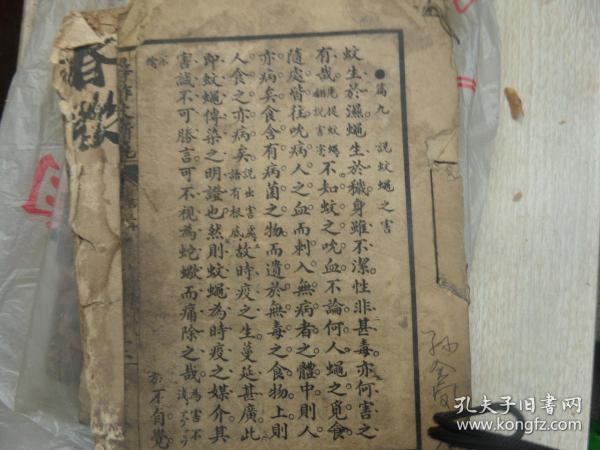 ●篇九　說蚊蠅之害
蚊生於濕。蠅生於穢。身雖不潔。性非甚毒。亦何害之
有哉。先從蚊蠅翻說害字不知蚊之吮血。不論何人。蠅之覓食。
隨處皆往。吮病人之血。而刺入無病者之體中。則人
亦病矣。食含有病菌之物。而遺於無毒之食物上。則
人食之亦病矣。說出害處語有根底故時疫之生。蔓延甚廣。此
即蚊蠅傳染之明證也。然則蚊蠅為時疫之媒介。其
害誠不可勝言。可不視為蛇蠍而痛除之哉。為害不淺
於不自覺
孔夫子旧書网
www.kongfz.com